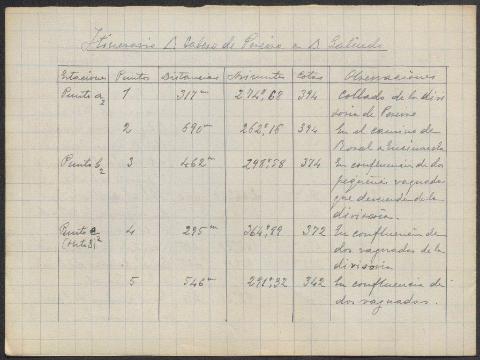 Itinerario D. Cabezo de Pereiro a D. Galindo
Estaciones Puntos Distancias Acimutes Cotas Observaciones
Punto a2 1 317m 274º,68 394 Collado de la divi
soria de Pereiro
2 590m 262º,16 394 En el camino de
Rosal a Encinasola
Punto b2 3 462m 298º,58 374 En confluencia de dos
pequeñas vaguadas
que descienden de la
divisoria.
Punto c2 4 295m 364º,89 372 En confluencia de
dos vaguadas de la
divisoria
5 546m 291º,32 342 En confluencia de
dos vaguadas.